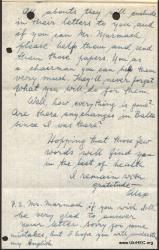 All abouts they will explain
in their letters to you and
if you can Mr. Marmash
please help them and send
them those papers. You as
a chairman you can help them
very much. They'll never forget
what you will do for them.
Well, how everything is good?
Are there any changes in Balta
since I was there?
Hopping that those few
words will find you
in the best of health
I remain with
gratitude—
Alex
P.S. Mr. Marmash if you wish I'll
be very glad to answer
your letter. Sorry for some
mistakes but I hope you will understand
my English
www.UkrHEC.org